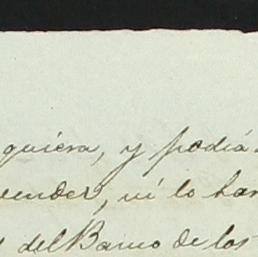 quiera, y podia
vender, ni lo har
del Barrio de los